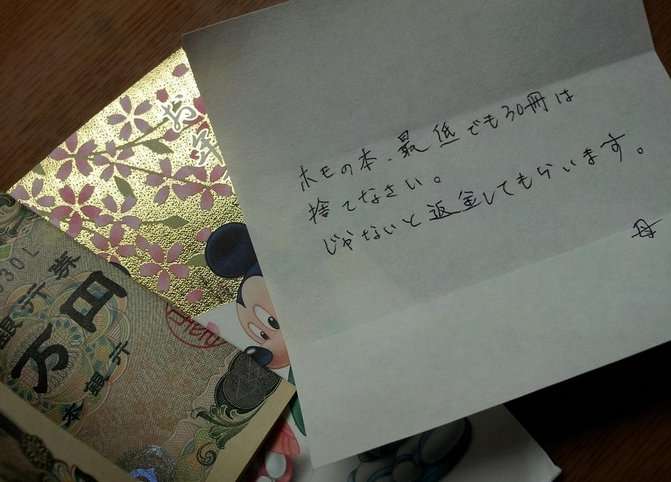 ホモの本、最低でも30冊は
捨てなさい。
じゃないと返金してもらいます。
母
お年
30L
銀行券
万円
本銀行